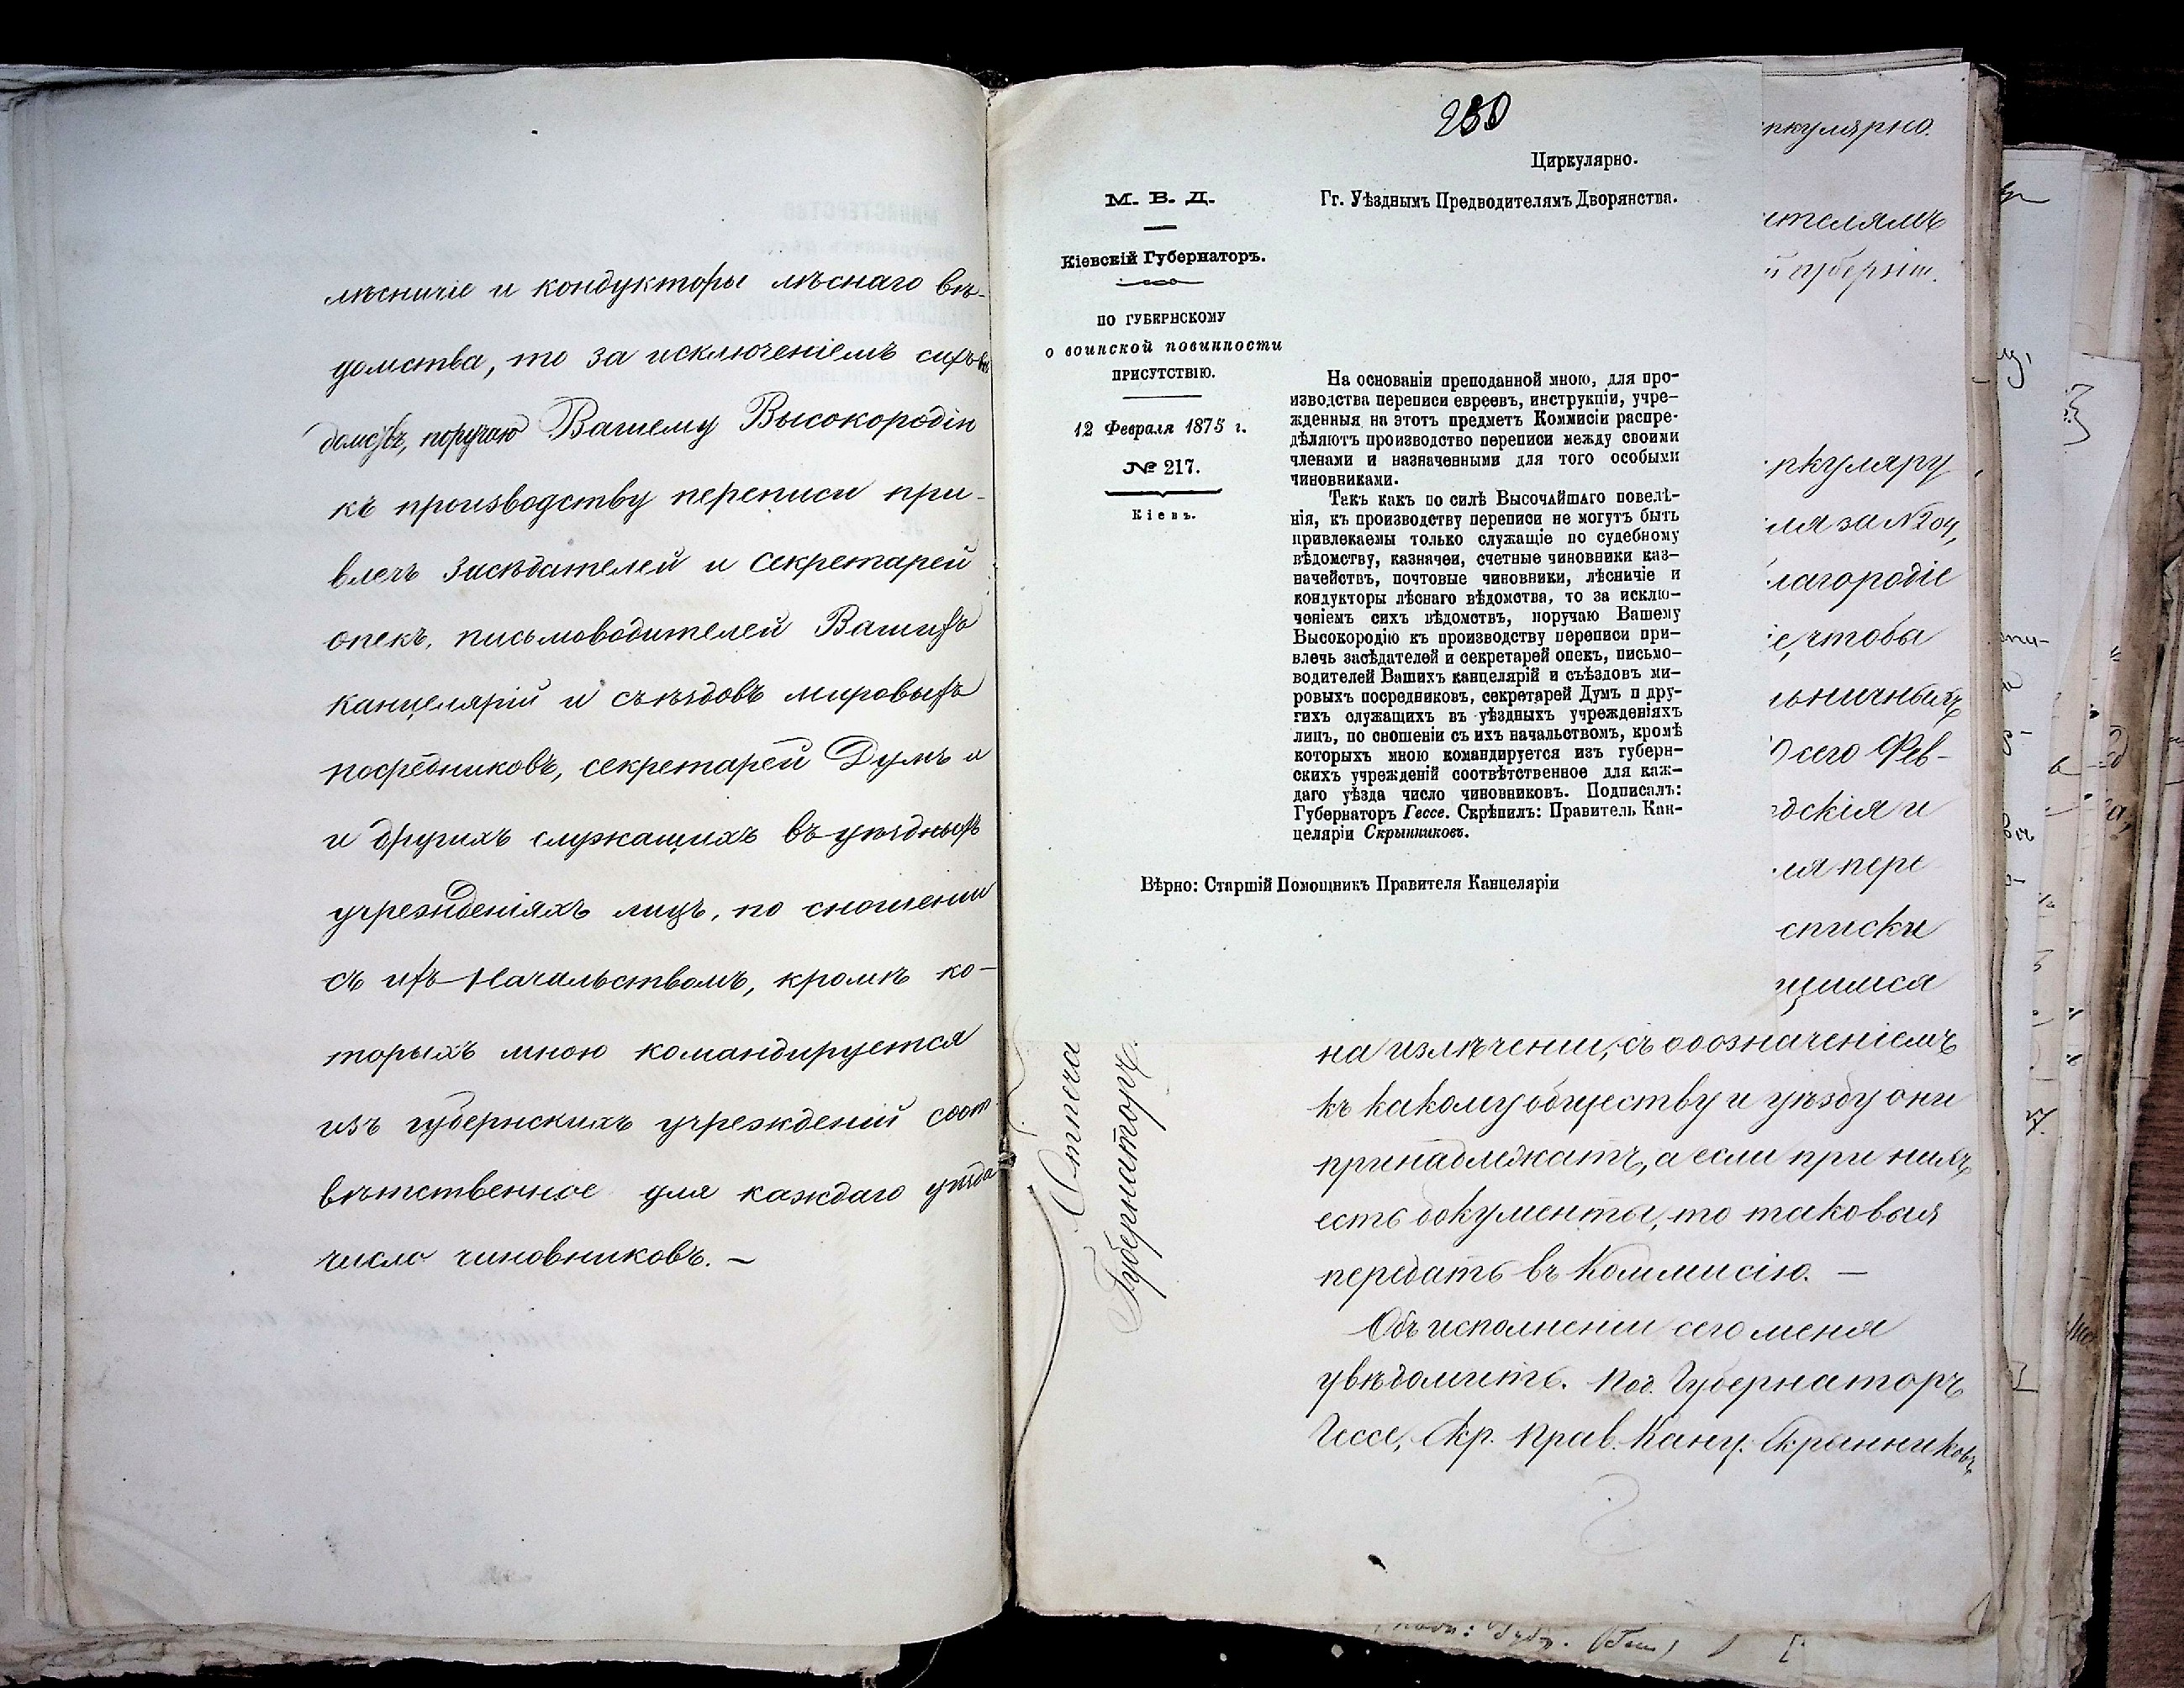 лѣсничіе и кондукторы лѣснаго вѣ-
домства, то за исключеніемъ сихъ вѣ
домствъ, поручаю Вашему Высокородію
къ производству переписи при-
влечь Засѣдателей и Секретарей
опекъ, письмоводителей Вашихъ
канцелярій и съѣздовъ мировыхъ
посредниковъ, секретарей Думъ и
и другихъ служащихъ въ уѣздныхъ
учрежденіяхъ лицъ, по сношеніи
съ ихъ Начальствомъ, кромѣ ко-
торыхъ мною командируется
изъ губернскихъ учрежденій соот-
вѣтственное для каждаго уѣзда
число чиновниковъ. —
230
Циркулярно.
М. В. Д.
Гг. Уѣзднымъ Предводителямъ Дворянства.
Кіевскій Губернаторъ.
ПО ГУБЕРНСКОМУ
о воинской повинности
ПРИСУТСТВІЮ.
12 Февраля 1875 г.
№ 217.
Кіевъ.
На основаніи преподанной мною, для про-
изводства переписи евреевъ, инструкціи, учре-
жденныя на этотъ предметъ Коммисіи распре-
дѣляютъ производство переписи между своими
членами и назначенными для того особыми
чиновниками.
Такъ какъ по силѣ Высочайшаго повелѣ-
нія, къ производству переписи не могутъ быть
привлекаемы только служащіе по судебному
вѣдомству, казначеи, счетные чиновники каз-
начействъ, почтовые чиновники, лѣсничіе и
кондукторы лѣснаго вѣдомства, то за исклю-
ченіемъ сихъ вѣдомствъ, поручаю Вашему
Высокородію къ производству переписи при-
влечь засѣдателей и секретарей опекъ, письмо-
водителей Вашихъ канцелярій и съѣздовъ ми-
ровыхъ посредниковъ, секретарей Думъ и дру-
гихъ служащихъ въ уѣздныхъ учрежденіяхъ
лицъ, по сношеніи съ ихъ начальствомъ, кромѣ
которыхъ мною командируется изъ губерн-
скихъ учрежденій соотвѣтственное для каж-
даго уѣзда число чиновниковъ. Подписалъ:
Губернаторъ Гессе. Скрѣпилъ: Правитель Кан-
целяріи Скрынниковъ.
Вѣрно: Старшій Помощникъ Правителя Канцеляріи
ркулярно.
ителямъ
й губерніи.
ркуляру
ля за №204,
лагородіе
е, чтобы
льничныхъ
0 сего Фев-
одскія и
ля пере
списки
щимися
на излѣченіи, съ обозначеніемъ
къ какому обществу и уѣзду они
принадлежатъ, а если при нихъ
есть документы, то таковыя
передать въ Коммисію. —
Объ исполненіи сего меня
увѣдомить. Под. Губернаторъ
Гессе, Скр. Прав. Канц. Скрынниковъ
Губернаторъ.